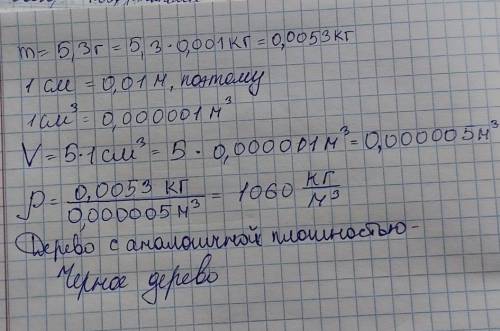 m= 5,3г = 5,3·0,001кг=0,0053кг
1 см = 0,01м, поэтому
1 см³= 0,000001м³
V = 5·1см³= 5 · 0,000001м³=0,000005м³
ρ = 0,0053 кг / 0,000005м³ = 1060 кг/м³
Дерево с аналогичной плотностью-
Черное дерево